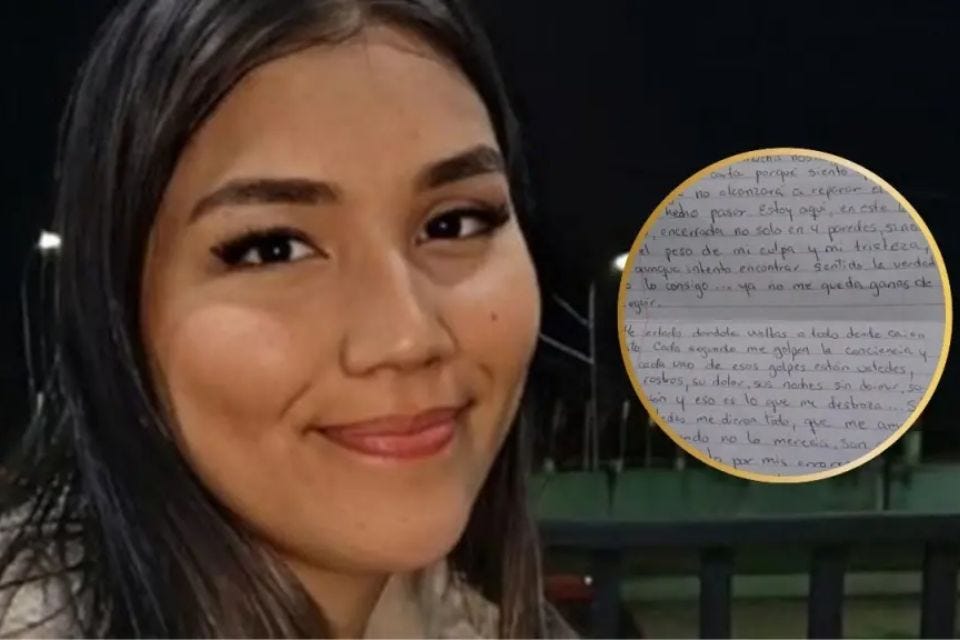 mucha nos
carta porque siento
no alcanzará a reparar el
hecho pasar. Estoy aquí, en este
, encerrada no solo en 4 paredes, sino
el peso de mi culpa y mi tristeza,
aunque intento encontrar sentido la verdad
lo consigo... ya no me queda ganas de
eguir.
He estado dandole vueltas a todo desde cai en
Cada segundo me golpea la conciencia y
cada uno de esos golpes están ustedes,
rostros, su dolor, sus noches sin dormir, su
ión y eso es lo que me destroza...
edes me dieron todo, que me am
ndo no lo merecia, son
por mis errores